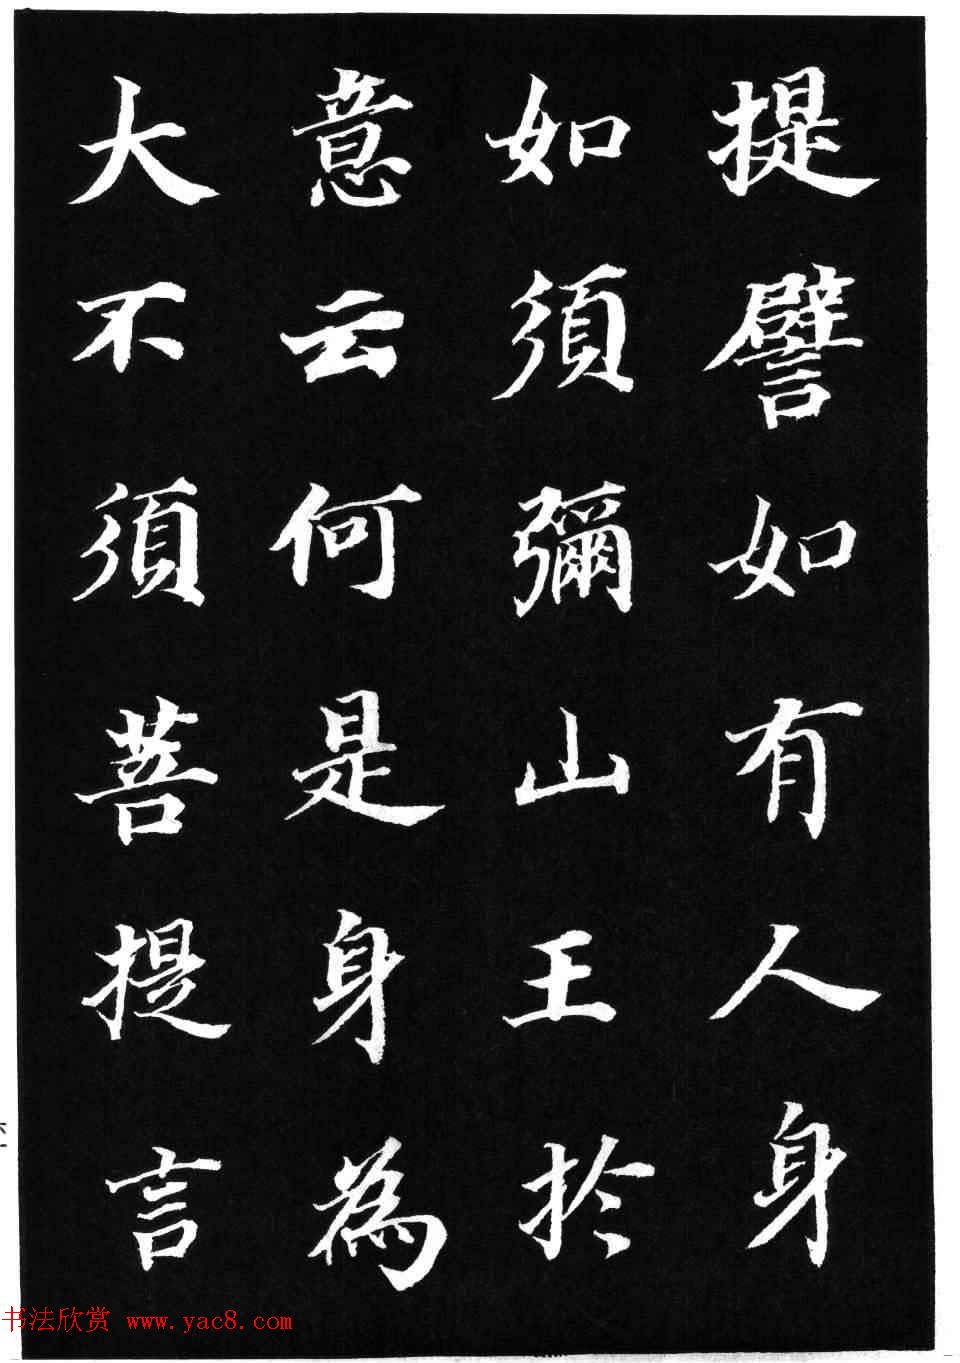 提譬如有人身
如須彌山王於
意云何是身為
大不須菩提言
书法欣赏 www.yac8.com